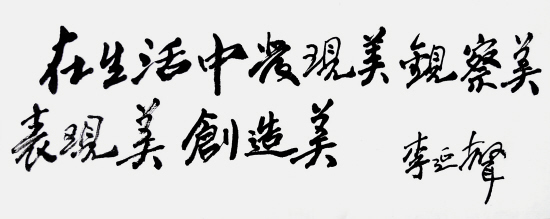 在生活中发現美觀察美
表現美創造美
李延声